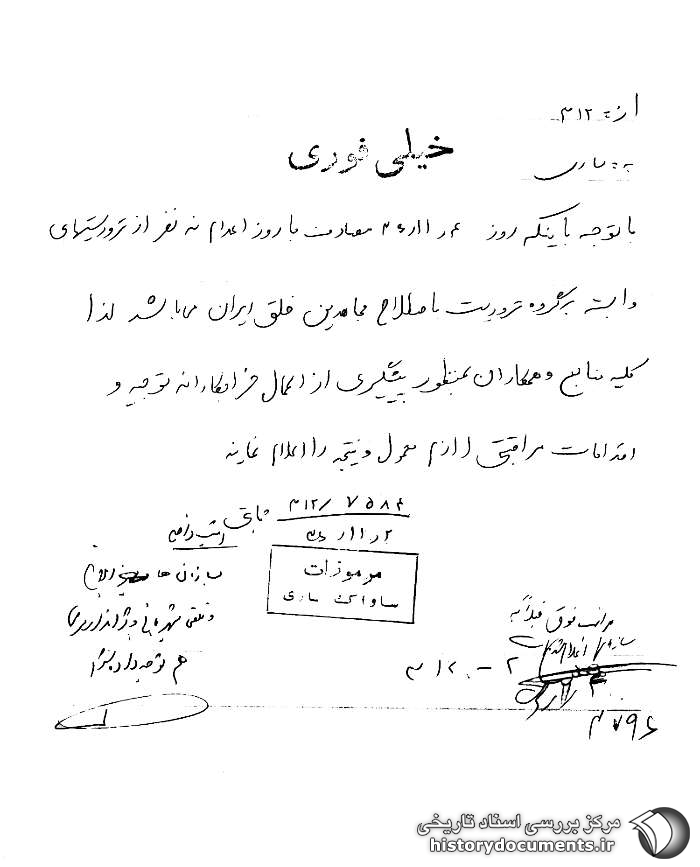 از: ۳۱۲
به: ساری
خیلی فوری
با توجه باینکه روز مصادف با روز اعدام نه نفر از تروریستهای
وابسته بگروه تروریست باصطلاح مجاهدین خلق ایران میباشد لذا
کلیه منابع و همکاران بمنظور پیشگیری از اعمال خرابکارانه توجیه و
اقدامات مراقبتی لازم معمول و نتیجه را اعلام نمایند
۳۱۲/ ۷۵۸۴
ثابتی
مرموزات
ساواک ساری
مراتب فوق قبلاً به
هم توجه داده بشود
۳۱۲۰ - ۲
۳۷۹۶
مرکز بررسی اسناد تاریخی
historydocuments.ir